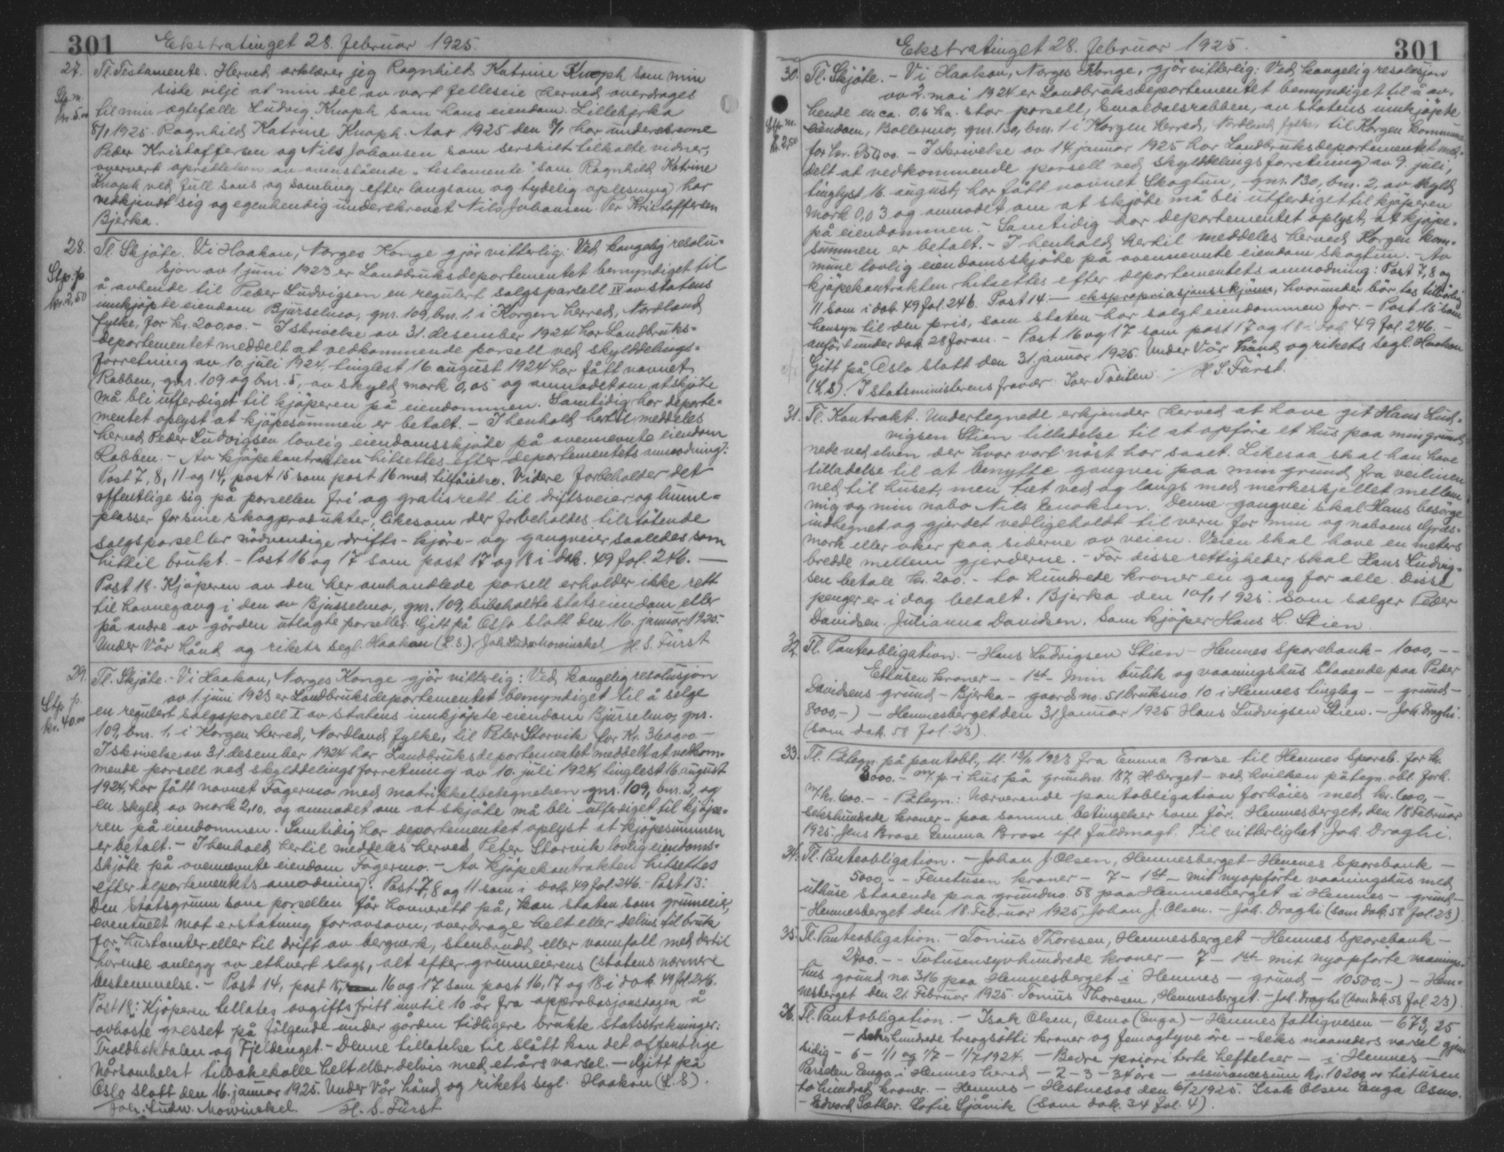 301 Ekstratinget 28. februar 1925.
27. Tl. Testamente. Herved erklærer jeg Ragnhild Katrine Knoph som min
St. m. siste vilje at min del av vort fælleseie herved overdrages
kr. 5.00 til min egtefælle Ludvig Knoph som hans eiendom. Lillebjerka
8/1 1925. Ragnhild Katrine Knoph. Aar 1925 den 8/1 har underskrevne
Peder Kristoffersen og Nils Johansen som serskilt tilkalte vidner,
overvært oprettelsen av ovenstående "testamente" som Ragnhild Katrine
Knoph ved full sans og samling efter langsom og tydelig oplesning har
vedkjendt sig og egenhendig underskrevet Nils Johansen. Per Kristoffersen
Bjerka.
28. Tl. Skjøte. Vi Haakon, Norges Konge gjør vitterlig: Ved kongelig resolu-
Stp. p. sjon av 1 juni 1923 er Landbruksdepartementet bemyndiget til
kr. 2,50 å avhende til Peder Ludvigsen en regulert salgsparsell IV av statens
innkjøpte eiendom Bjurselmo, gnr. 109, bnr. 1. i Korgen herred, Nordland
fylke, for kr. 200,00. - I skrivelse av 31. desember 1924 har Landbruks-
departementet meddelt at vedkommende parsell ved skylddelings-
forretning av 10. juli 1924, tinglest 16 august 1924 har fått navnet
Rabben, gnr. 109 og bnr. 5, av skyld mark 0,05 og anmodet om, at skjøte
må bli utferdiget til kjøperen på eiendommen. Samtidig har departe-
mentet oplyst at kjøpesummen er betalt. - I henhold hertil meddeles
herved Peder Ludvigsen lovlig eiendomsskjøte på ovennevnte eiendom
Rabben. - Av kjøpekontrakten hitsettes efter departementets anmodning:
Post 7, 8, 11 og 14, post 15 som post 16 med tilføielse. Videre forbeholder det
offentlige sig på parsellen fri og gratis rett til driftsveier og tunne-
plasser for sine skogprodukter, likesom der forbeholdes tilstøtende
salgsparseller nødvendige drifts- kjøre- og gangveier saaledes som
hittil brukt. - Post 16 og 17 som post 17 og 18 i dok. 49 fol. 246. -
Post 18. Kjøperen av den her omhandlede parsell erholder ikke rett
til havnegang i den av Bjurselmo, gnr. 109, bibeholdte statseiendom eller
på andre av gården utlagte parseller. Gitt på Oslo slott den 16. januar 1925
Under Vår hånd og rikets segl. Haakon (L.S). Joh. Ludw. Mowinckel H. S. Fürst
29. Tl. Skjøte. Vi Haakon, Norges Konge gjør vitterlig: Ved kongelig resolusjon
Stp. p. av 1 juni 1923 er Landbruksdepartementet bemyndiget til å selge
kr. 40.00 en regulert salgsparsell I av statens innkjøpte eiendom Bjurselmo, gnr.
109, bnr. 1. i Korgen herred, Nordland fylke, til Peter Storvik for kr. 3600,00 -
I skrivelse av 31 desember 1924 har Landbruksdepartementet meddelt at vedkom-
mende parsell ved skylddelingsforretning av 10. juli 1924, tinglest 16 august
1924, har fått navnet Fagermo med matrikkelbetegnelsen gnr. 109, bnr. 2, og
en skyld av mark 2,10. og anmodet om at skjøte må bli utferdiget til kjøpe-
ren på eiendommen. Samtidig har departementet oplyst at kjøpesummen
er betalt. - I henhold hertil meddeles herved Peter Storvik lovlig eiendoms-
skjøte på ovennevnte eiendom Fagermo. - Av kjøpekontrakten hitsettes
efter departementets anmodning: Post 7, 8 og 11 som i dok. 49 fol. 246. - Post 13:
Den statsgrunn som parsellen får havnerett på, kan staten som grunneier,
eventuelt mot erstatning for avsavn, overdrage helt eller delvis til bruk
for hustomter eller til drift av bergverk, stenbrudd, eller vannfall med dertil
hørende anlegg av ethvert slags, alt efter grunneierens (statens) nærmere
bestemmelse. - Post 14, post 15, 16 og 17 som post 16, 17 og 18 i dok 49 fol. 246.
Post 18: Kjøperen tillates avgiftsfritt inntil 10 år fra approbasjonsdagen å
avhøste gresset på følgende under gården tidligere brukte statsstrekninger:
Troldbokdalen og Fjeldenget. - Denne tillatelse til slått kan det offentlige
nårsomhelst tilbakekalle helt eller delvis med etårs varsel. - Gitt på
Oslo slott den 16. januar 1925. Under Vår hånd og rikets segl. Haakon (L.S).
Joh. Ludw. Mowinckel H. S. Fürst
Ekstratinget 28. februar 1925. 301
30. Tl. Skjøte. - Vi Haakon, Norges Konge, gjør vitterlig: Ved kongelig resolusjon
av 2. mai 1924 er Landbruksdepartementet bemyndiget til å av-
hende en ca. 0,5 ha. stor parsell, av statens innkjøpte
Stp. m. eiendom, gnr. 130, bnr. 1 i Korgen herred, Nordland fylke, til Korgen kommune
kr. 2,50 for kr. 250,00. - I skrivelse av 14 januar 1925 har Landbruksdepartementet med-
delt at vedkommende parsell ved skylddelingsforretning av 9. juli,
tinglyst 16 august, har fått navnet Skogtun, gnr. 130, bnr. 2, av skyld
mark 0,03 og anmodet om at skjøte må bli utferdiget til kjøperen
på eiendommen. - Samtidig har departementet oplyst, at kjøpe-
summen er betalt. - I henhold hertil meddeles herved Korgen kom-
mune lovlig eiendomsskjøte på ovennevnte eiendom Skogtun. - Av
kjøpekontrakten hitsettes efter departementets anmodning: Post 7, 8 og
11 som i dok 49 fol 246. Post 14 - ekspropriasjonsskjønn, hvorunder bør tas tilbørlig
hensyn til den pris, som staten har solgt eiendommen for. - Post 15 som
anført under dok 28 foran. - Post 16 og 17 som post 17 og 18 i dok 49 fol. 246. -
Gitt på Oslo slott den 31 januar 1925 Under Vår hånd og rikets segl. Haakon
(L.S). I statsministerens fravær Ivar Tveiten. H S Fürst.
31. Tl. Kontrakt. Undertegnede erkjender herved at have git Hans Lud-
vigsen Stien tilladelse til at opføre et hus paa min grund,
nede ved elven der hvor vort nøst har staaet. Likesaa skal han have
tilladelse til at benytte gangvei paa min grund, fra veilinien
ned til huset, men tæt ved og langs med merkeskjellet mellem
mig og min nabo Nils Enoksen. Denne gangvei skal Hans besørge
indhegnet og gjerdet vedligeholdt til vern for min og naboens Græs-
mark eller aker paa siderne av veien. Veien skal have en meters
bredde mellem gjerderne. - For disse rettigheder skal Hans Ludvig-
sen betale kr. 200. - to hundrede kroner en gang for alle. Disse
penger er i dag betalt. Bjerka den 10/1 1925. Som sælger Peder
Davidsen. Julianna Davidsen. Som kjøper Hans L. Stien.
32. Tl. Panteobligation. - Hans Ludvigsen Stien - Hemnes Sparebank - 1000,--
Ettusen kroner -- 1ste - min butik og vaaningshus staaende paa Peder
Davidsens grund - Bjerka - gaards no. 51 bruksno 10 i Hemnes tinglag -- grund -
8000,-) - Hemnesberget den 31 Januar 1925 Hans Ludvigsen Stien. - Joh. Draghi.
(som dok. 58 fol. 23).
33. Tl. Påtegn. på pantobl., tl. 1923 fra Emma Brose til Hemnes Spareb. for kr.
3000.- m. p. i hus på grundnr. 187, H.berget - ved hvilken påtegn. obl. forh.
m. kr. 600. -- Påtegn.: Nærværende pantobligation forhøies med kr. 600,-
sekshundrede kroner - paa samme betingelser som før. Hemnesberget, den 18 Februar
1925. Jens Brose Emma Brose eft. fuldmagt. Til vitterlighet: Joh. Draghi.
34. Tl. Panteobligation. - Johan J. Olsen, Hemnesberget - Hemnes Sparebank -
5000,-- Femtusen kroner - 7 - 1ste - mit nyopførte vaaningshus med
uthuse staaende paa grundno 58 paa Hemnesberget i Hemnes - grund -
- Hemnesberget den 18. Februar 1925. Johan J. Olsen. - Joh. Draghi (som dok. 58 fol. 23)
35. Tl. Panteobligation. - Tonius Thoresen, Hemnesberget - Hemnes Sparebank -
2700. -- Totusensyvhundrede kroner - 7 - 1ste - mit nyopførte vaanings-
hus grund no. 316 paa Hemnesberget i Hemnes - grund - 10500.-) - Hem-
nesberget den 21. Februar 1925. Tonius Thoresen, Hemnesberget - Joh. Draghi (som dok 58 fol 23).
36. Tl. Pantobligation. - Isak Olsen, Osmo (Enga) - Hemnes Fattigvesen - 673,25
- sekshundrede treogsøtti kroner og femogtyve øre - seks maaneders varsel gjen-
sidig - 6 - 1/1 og 1/7 - 1/7 1924. - Bedre priorite heftelser - i Hemnes -
Parselen Enga i Hemnes herred - 2 - 3 - 34 øre - assurancesum kr. 10200,-
to hundred kroner. - Hemnes - Hestnesos den 6/2 1925. Isak Olsen Enga Osmo.
- Edvard Sæther. Sofie Sjåvik (som dok. 34 fol. 4).